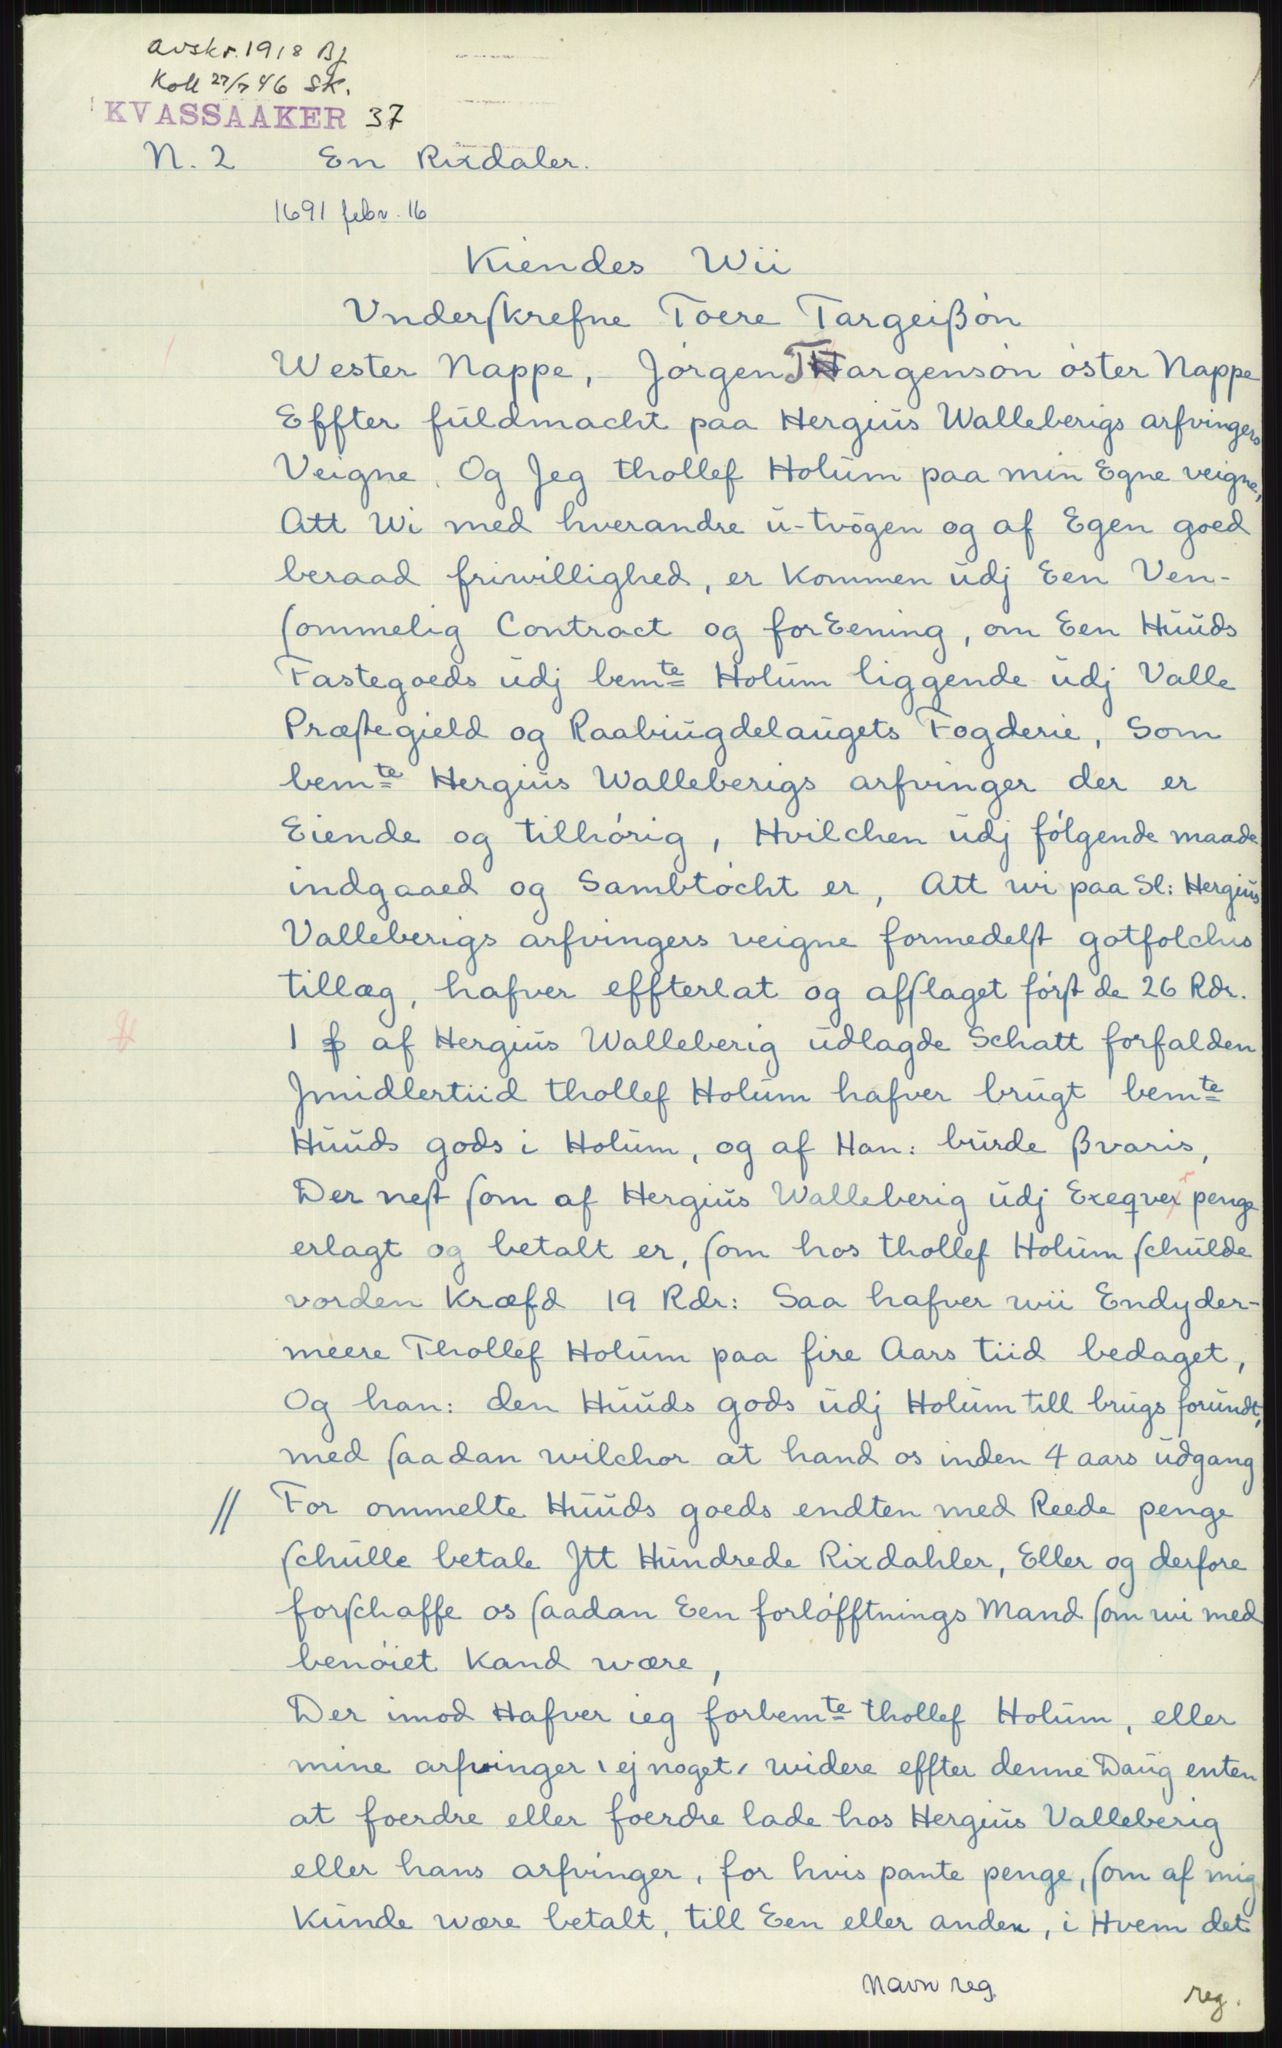 avskr. 1918 Bj
Koll 27/7 46 SK.
KVASSAAKER 37
N. 2 En Rixdaler.
1691 febr. 16
Kiendes Wii
Underſkrefne Toere Targeißón
Wester Nappe, Jórgen Targensón óster Nappe
Effter fuldmacht paa Hergius Walleberigs arfvingers
Veigne. Og Jeg thollef Holum paa min Egne veigne,
Att Wi med hverandre u-tvógen og af Egen goed
beraad friwillighed, er Kommen udj Een Ven-
ſommelig Contract og forEening, om Een Huuds
Fastegoeds udj bemte Holum liggende udj Valle
Præſtegield og Raabiugdelaugets Fogderie, Som
bemte Hergius Walleberigs arfvinger der er
Eiende og tilhórig, Hvilchen udj fólgende maade
indgaaed og Sambtócht er, Att wi paa Sl: Hergius
Valleberigs arfvingers veigne formedelſt gotfolchis
tillæg, hafver effterlat og afſlaget fórſt de 26 Rdr.
1 ꞵ af Hergius Walleberig udlagde Schatt forfalden
Jmidlertiid thollef Holum hafver brugt bemte
Huuds gods i Holum, og af Han: burde ßvaris,
Der neſt ſom af Hergius Walleberig udj Exequer penge
erlagt og betalt er, ſom hos thollef Holum ſchulde
vorden Kræfd 19 Rdr: Saa hafver wii Endyder-
meere Thollef Holum paa fire Aars tiid bedaget,
Og han: den Huuds gods udj Holum till brugs forundt,
med ſaadan wilchor at hand os inden 4 aars udgang
// For ommelte Huuds goeds endten med Reede penge
ſchulle betale Jtt Hundrede Rixdahler, Eller og derfore
forſchaffe os ſaadan Een forlófftnings Mand ſom wi med
benóiet Kand wære,
Der imod Hafver ieg forbemte thollef Holum, eller
mine arfvinger, ej noget, widere effter denne Daug enten
at foerdre eller foerdre lade hos Hergius Valleberig
eller hans arfvinger, for hvis pante penge, ſom af mig
Kunde wære betalt, till Een eller anden, i Hvem det
Navn reg.
reg.